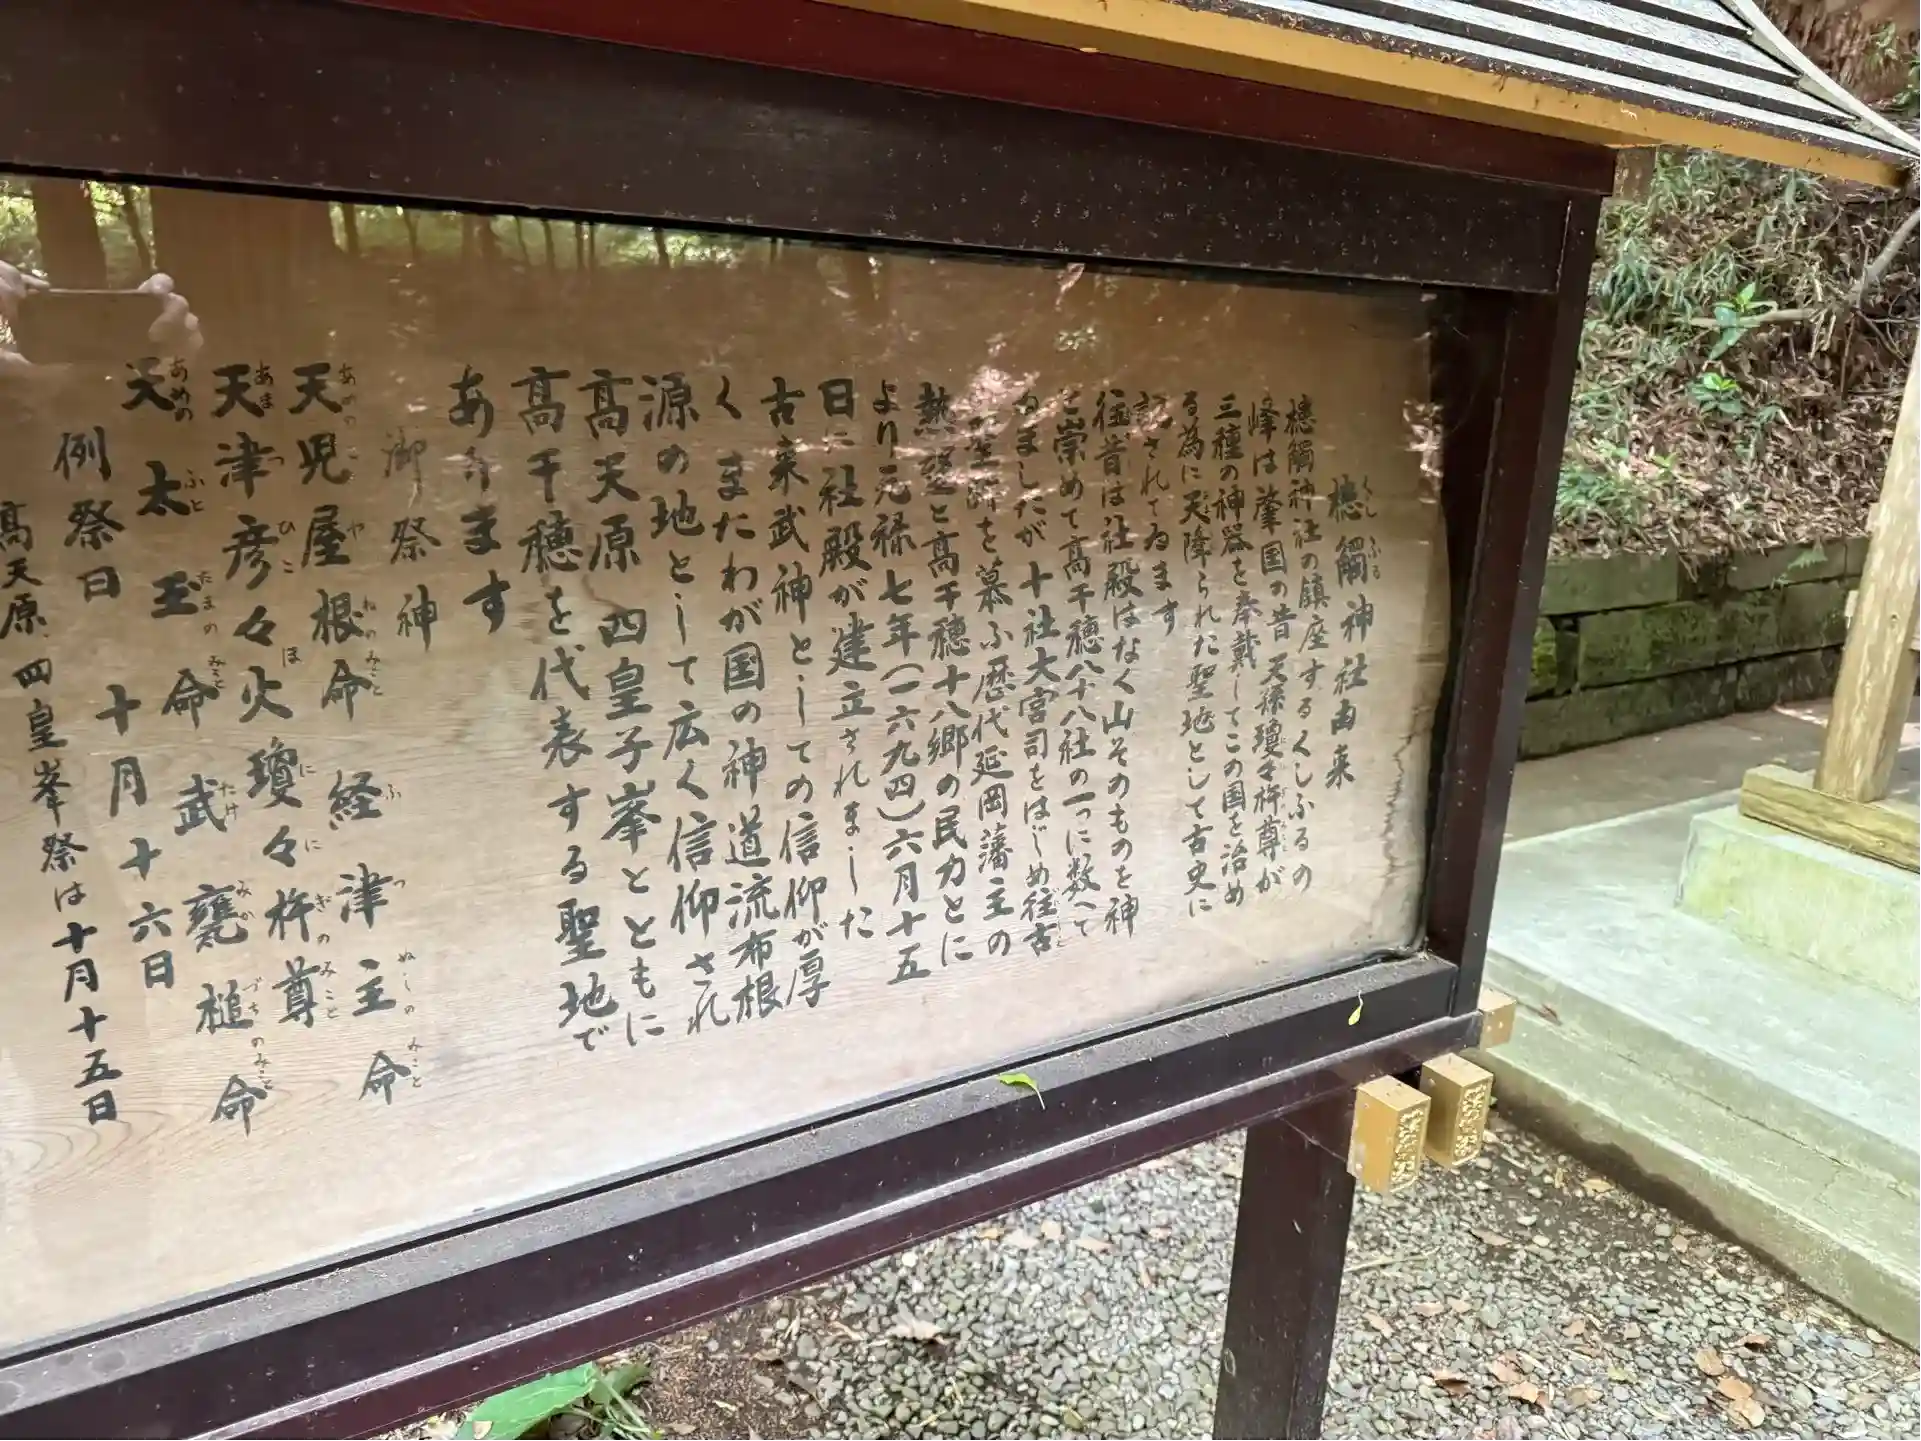 槵觸神社由来
槵觸神社の鎮座するくしふるの
峰は肇国の昔天孫瓊々杵尊が
三種の神器を奉戴してこの国を治め
る為に天降られた聖地として古史に
記されてゐます
往昔は社殿はなく山そのものを神
と崇めて高千穂八十八社の一つに数へて
ゐましたが十社大宮司をはじめ往古
の聖蹟を慕ふ歴代延岡藩主の
熱望と高千穂十八郷の民力とに
より元禄七年(一六九四)六月十五
日に社殿が建立されました
古来武神としての信仰が厚
くまたわが国の神道流布根
源の地として広く信仰され
高天原四皇子峯とともに
高千穂を代表する聖地で
あります
御祭神
天児屋根命 経津主命
あめのこやねのみこと ふつぬしのみこと
天津彦々火瓊々杵尊
あまつひこほににぎのみこと
天太玉命 武甕槌命
あめのふとたまのみこと たけみかづちのみこと
例祭日 十月十六日
高天原四皇峯祭は十月十五日